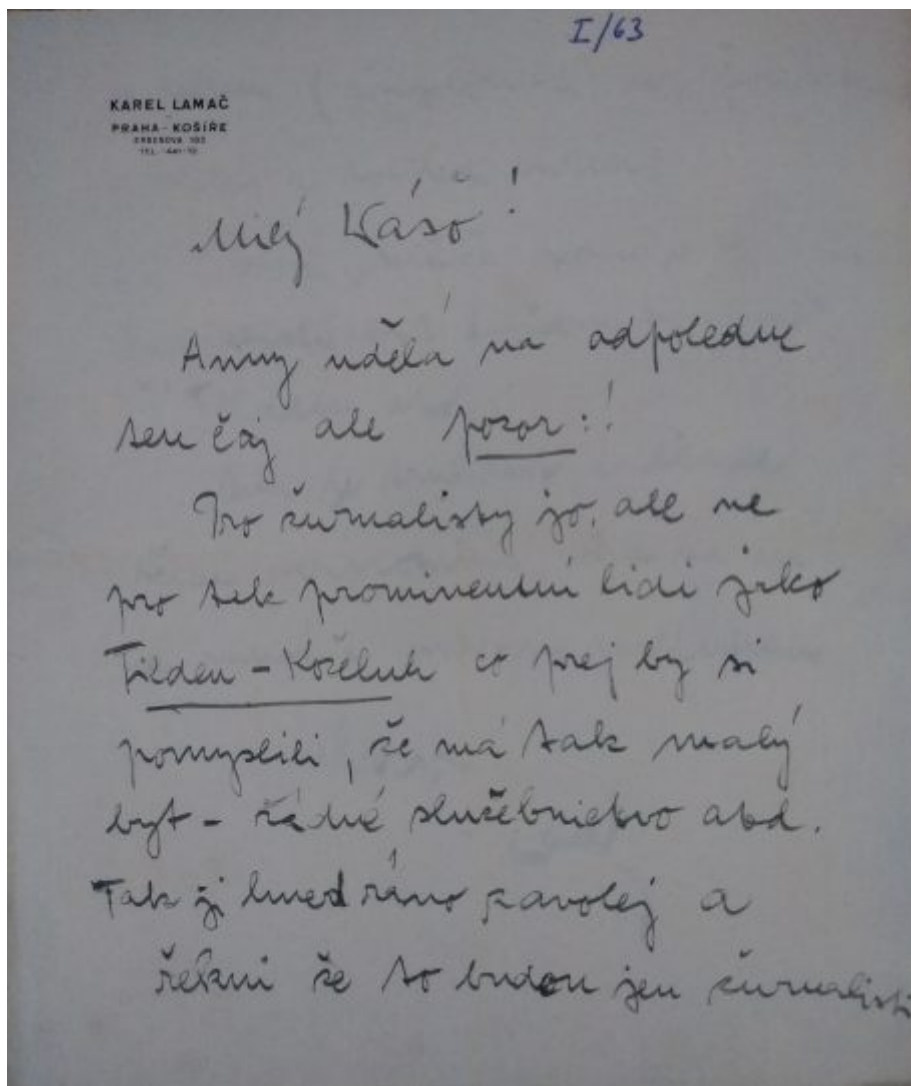 I/63
KAREL LAMAČ
PRAHA - KOŠÍŘE
TEL.
Milý Kášo!
Anny udělá na odpoledne
ten čaj ale pozor:!
Pro žurnalisty jo, ale ne
pro tak prominentní lidi jako
Tilden - Koželuh co prej by si
pomyslili, že má tak malý
byt - žádné služebnictvo atd.
Tak jí hned ráno zavolej a
řekni že to budou jen žurnalisti